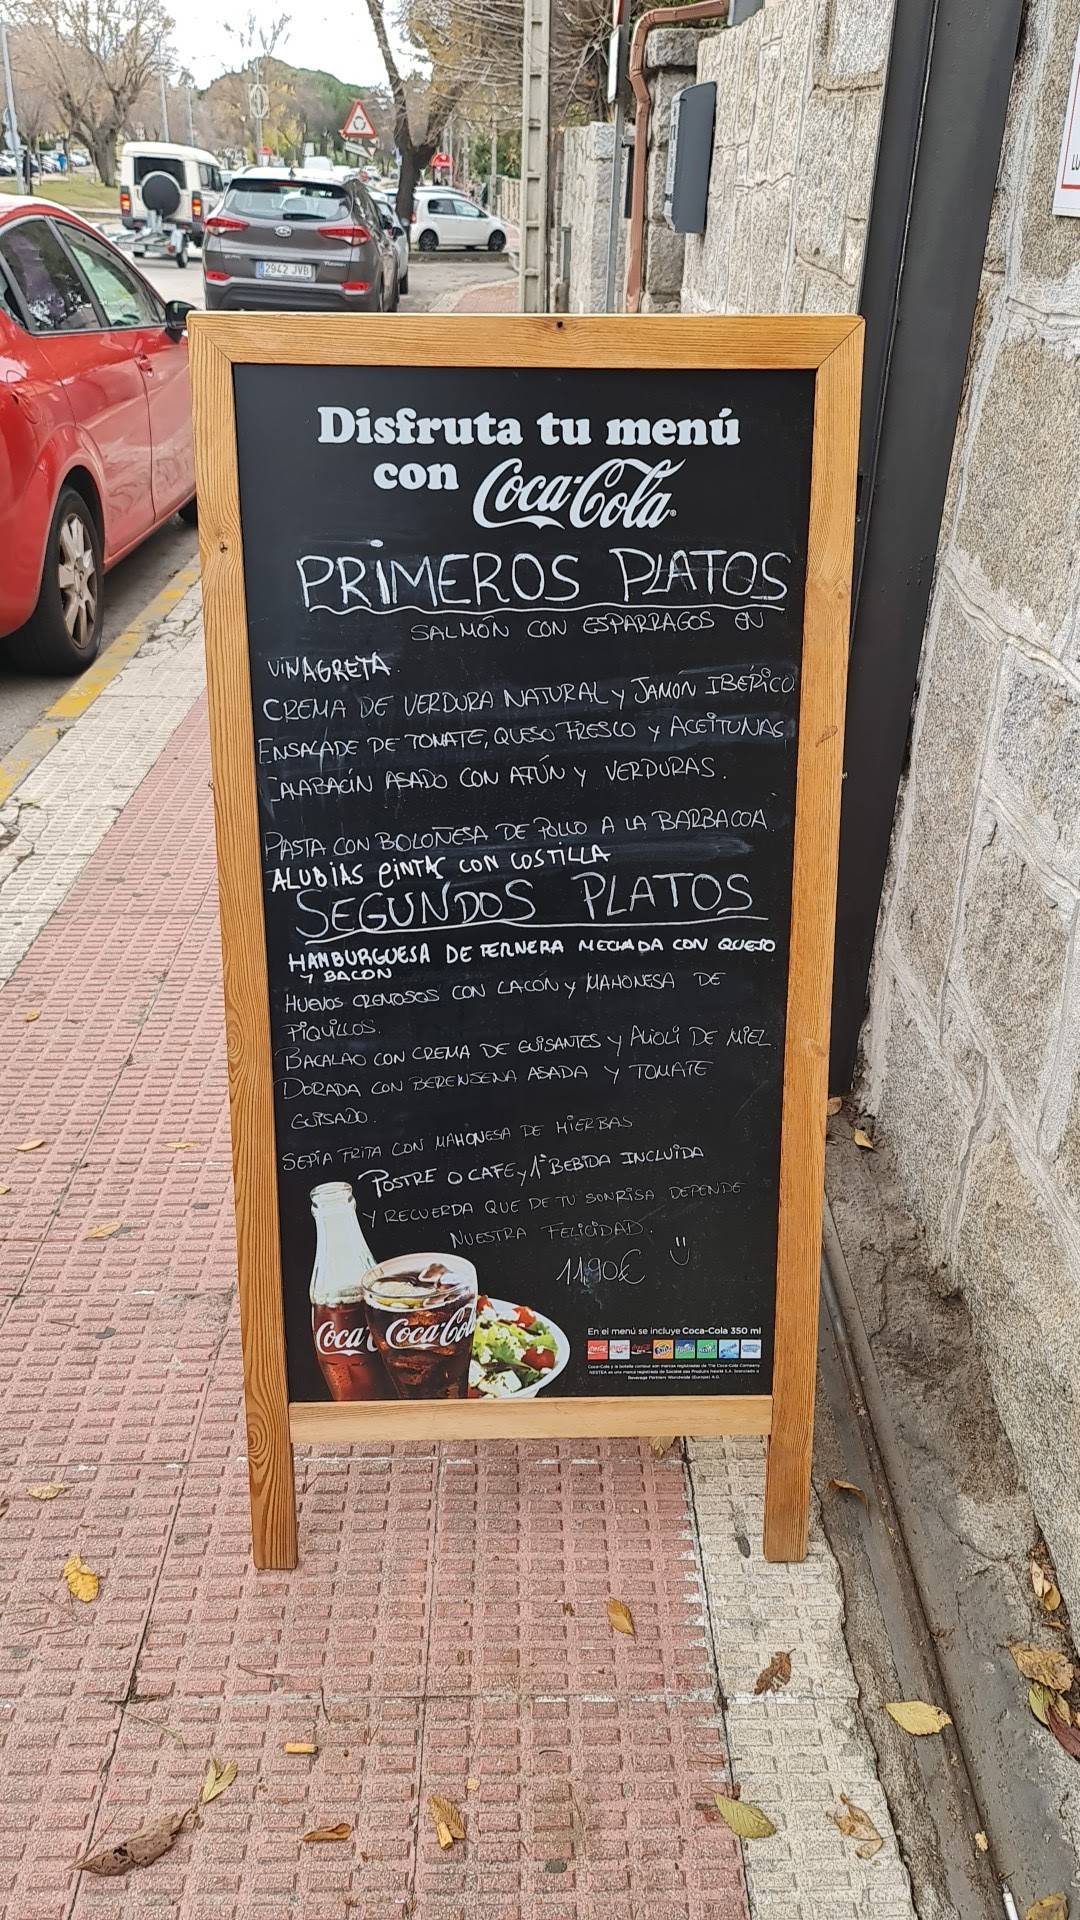 2942 JVB
Disfruta tu menú
con Coca-Cola
PRIMEROS PLATOS
SALMÓN CON ESPARRAGOS EN
VINAGRETA.
CREMA DE VERDURA NATURAL Y JAMÓN IBERICO.
ENSALADE DE TOMATE, QUESO FRESCO Y ACEITUNAS
CALABACÍN ASADO CON ATÚN Y VERDURAS.
PASTA CON BOLOÑESA DE POLLO A LA BARBACOA.
ALUBIAS PINTAS CON COSTILLA
SEGUNDOS PLATOS
HAMBURGUESA DE TERNERA MECHADA CON QUESO
Y BACON
HUEVOS CREMOSOS CON LACÓN Y MAHONESA DE
PIQUILLOS.
BACALAO CON CREMA DE GUISANTES Y ALIOLI DE MIEL.
DORADA CON BERENJENA ASADA Y TOMATE
GUISADO.
SEPIA FRITA CON MAHONESA DE HIERBAS
POSTRE O CAFE Y 1ª BEBIDA INCLUIDA
Y RECUERDA QUE DE TU SONRISA DEPENDE
NUESTRA FELICIDAD.
11,90€
Coca Coca-Col
En el menú se incluye Coca-Cola 350 ml